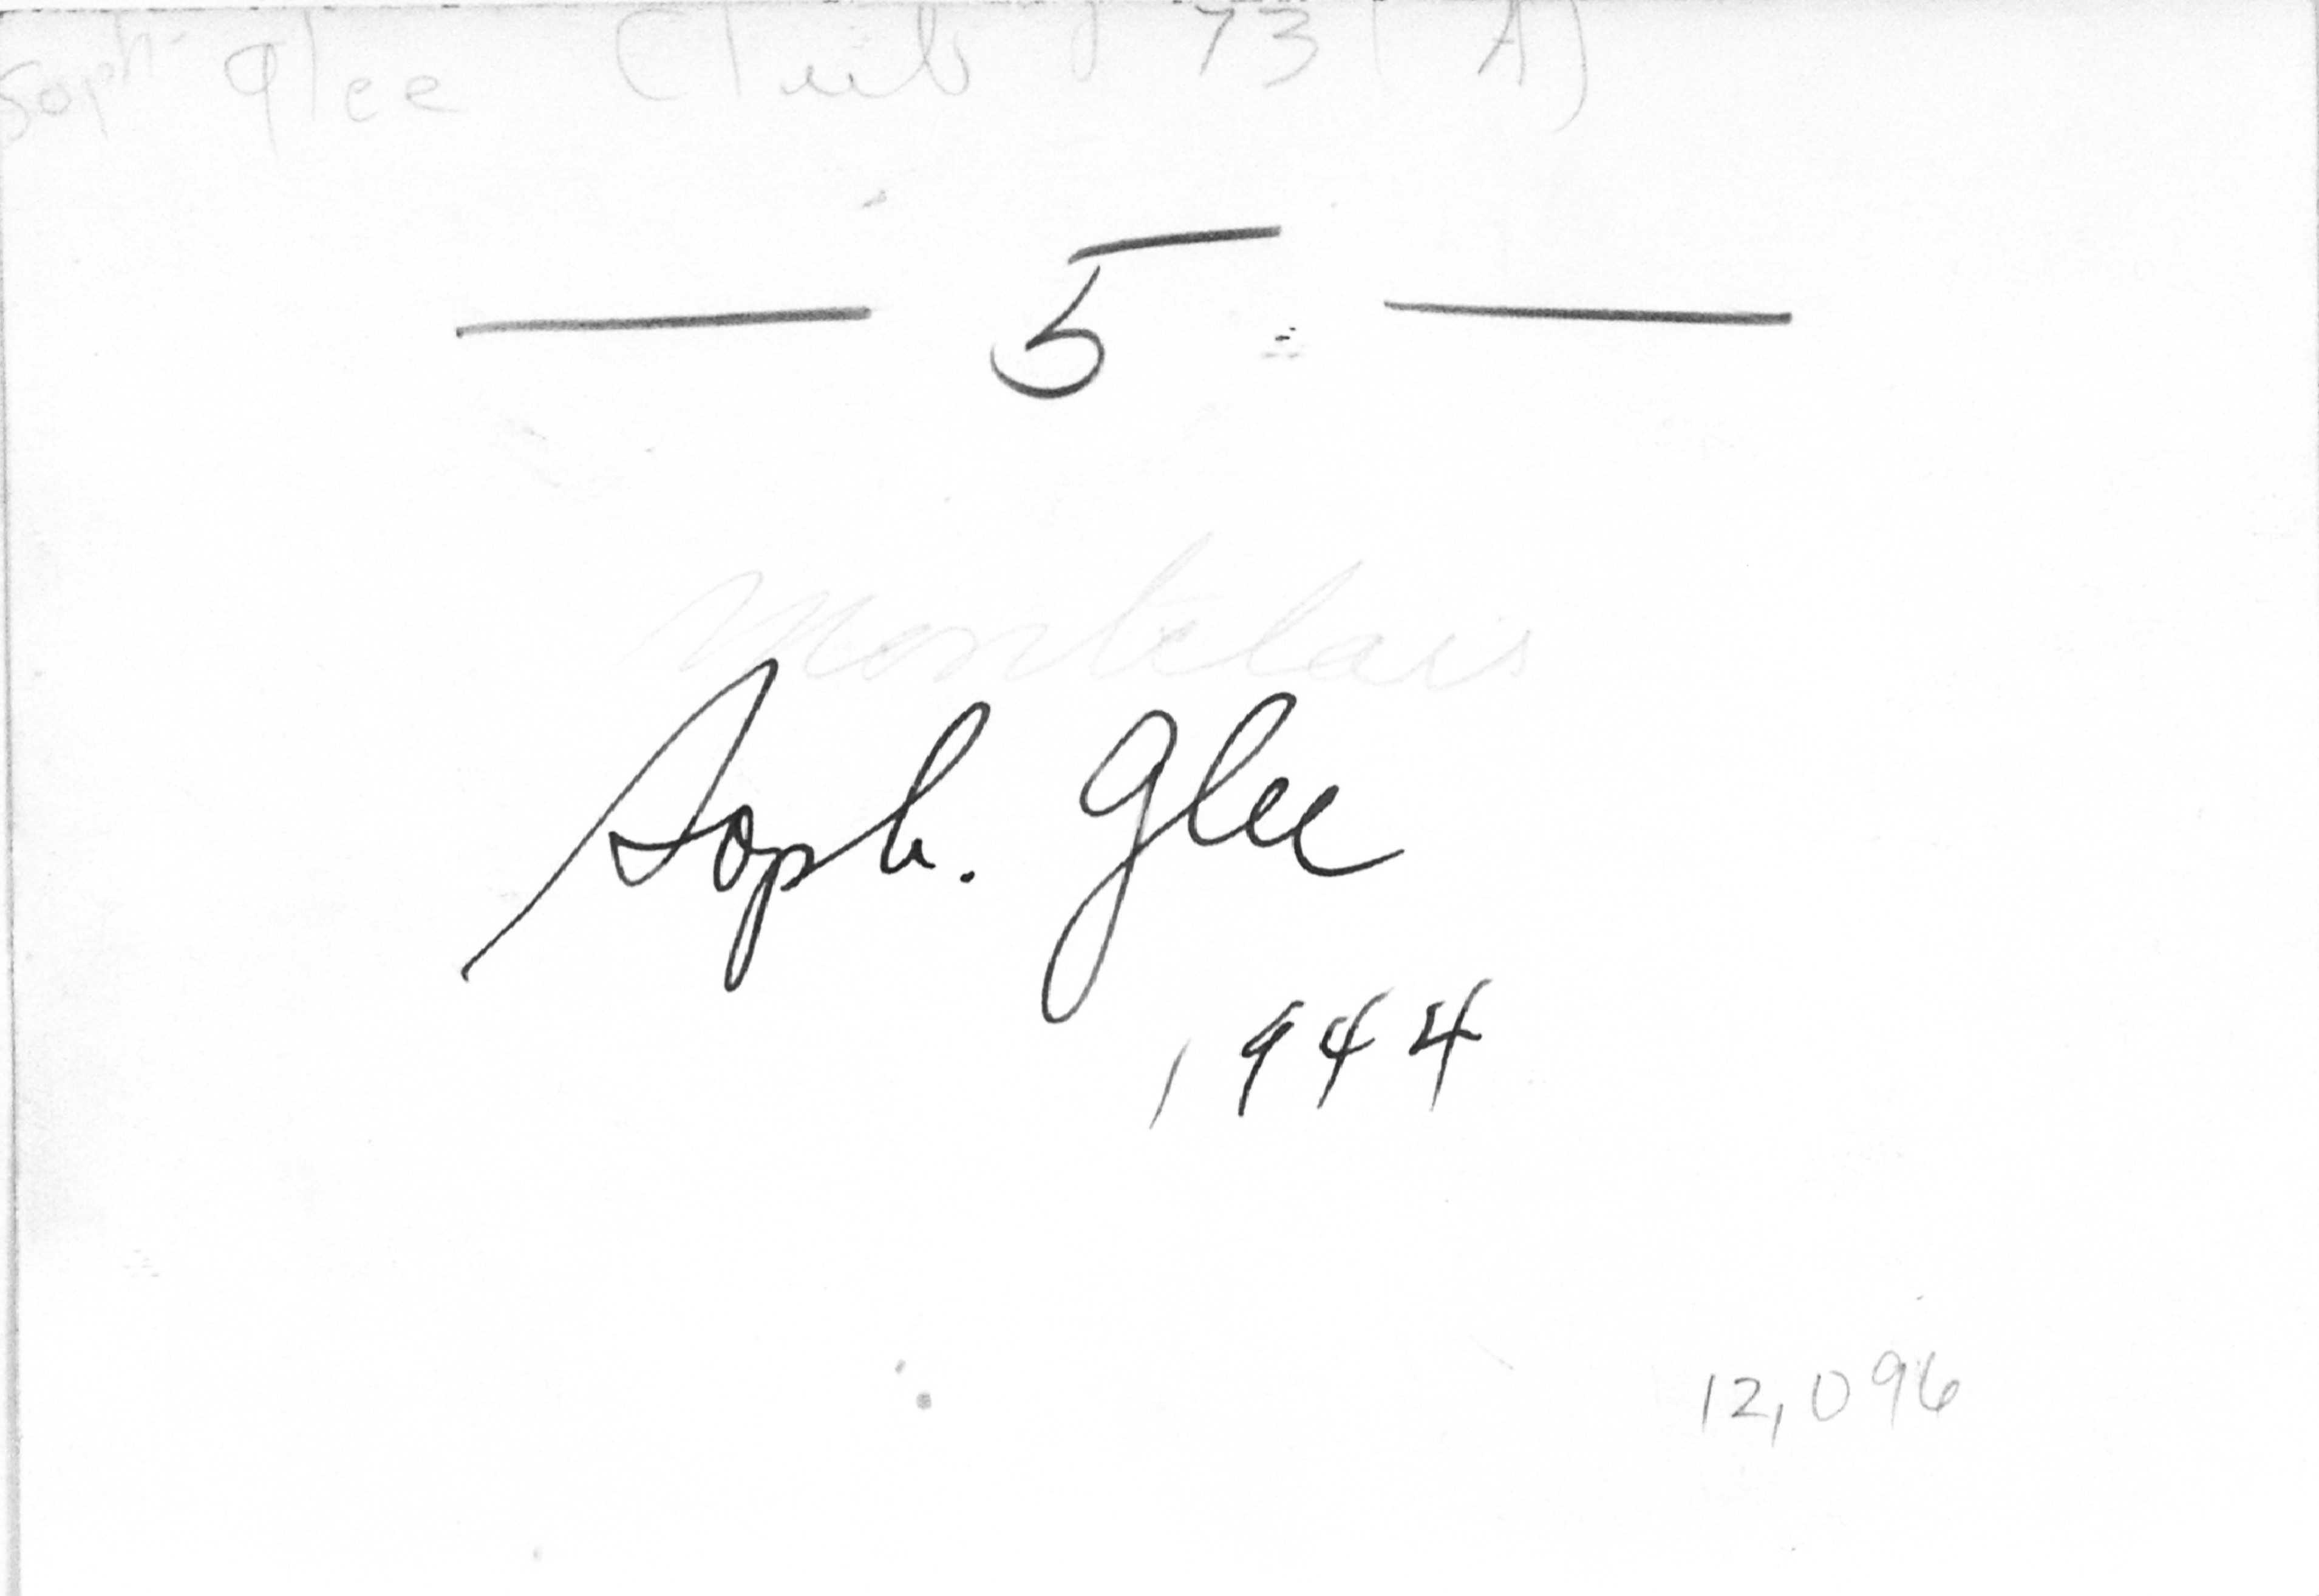 Soph Glee Club p 73 (A)
— 5 —
Montclair
Soph. Glee
1944
12,096